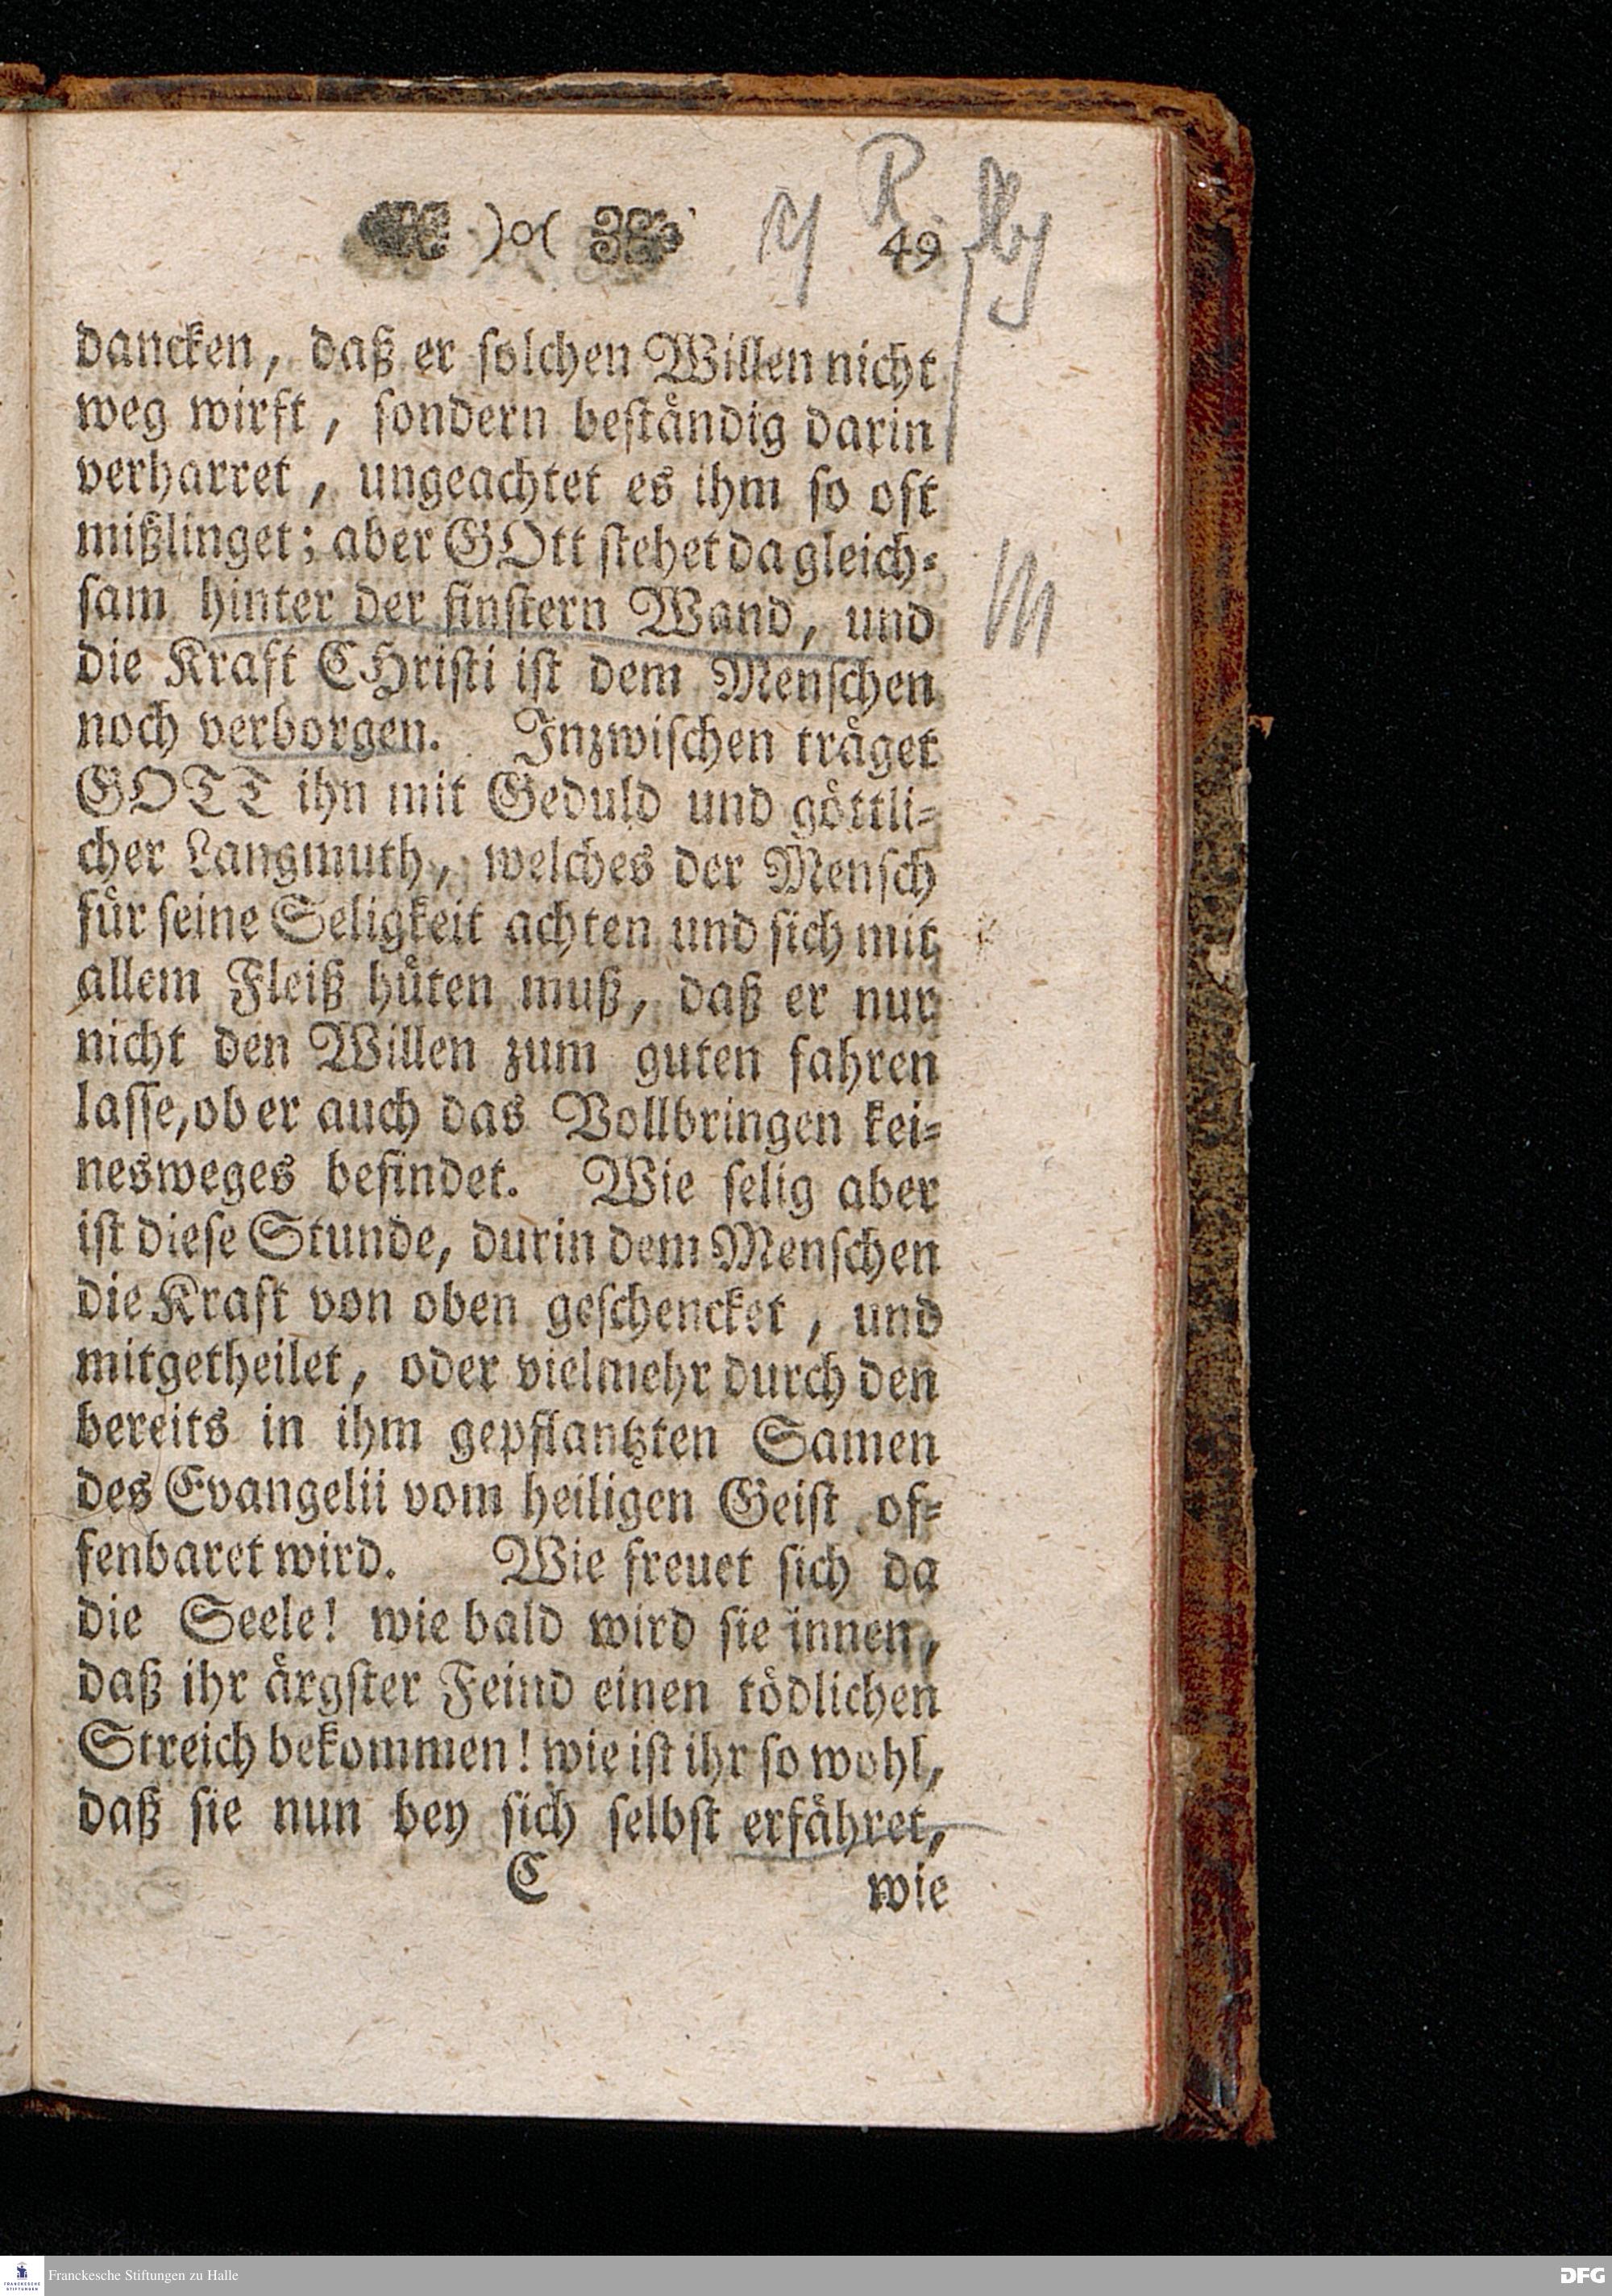 )o( 49
dancken, daß er solchen Willen nicht
weg wirft, sondern beständig darin
verharret, ungeachtet es ihm so oft
mißlinget; aber GOtt stehet da gleich-
sam hinter der finstern Wand, und
die Kraft CHristi ist dem Menschen
noch verborgen. Inzwischen träget
GOTT ihn mit Geduld und göttli-
cher Langmuth, welches der Mensch
für seine Seligkeit achten und sich mit
allem Fleiß hüten muß, daß er nur
nicht den Willen zum guten fahren
lasse, ob er auch das Vollbringen kei-
nesweges befindet. Wie selig aber
ist diese Stunde, durin dem Menschen
die Kraft von oben geschencket, und
mitgetheilet, oder vielmehr durch den
bereits in ihm gepflantzten Samen
des Evangelii vom heiligen Geist of-
fenbaret wird. Wie freuet sich da
die Seele! wie bald wird sie innen,
daß ihr ärgster Feind einen tödlichen
Streich bekommen! wie ist ihr so wohl,
daß sie nun bey sich selbst erfähret,
C wie
FRANCKESCHE STIFTUNGEN
Franckesche Stiftungen zu Halle
DFG